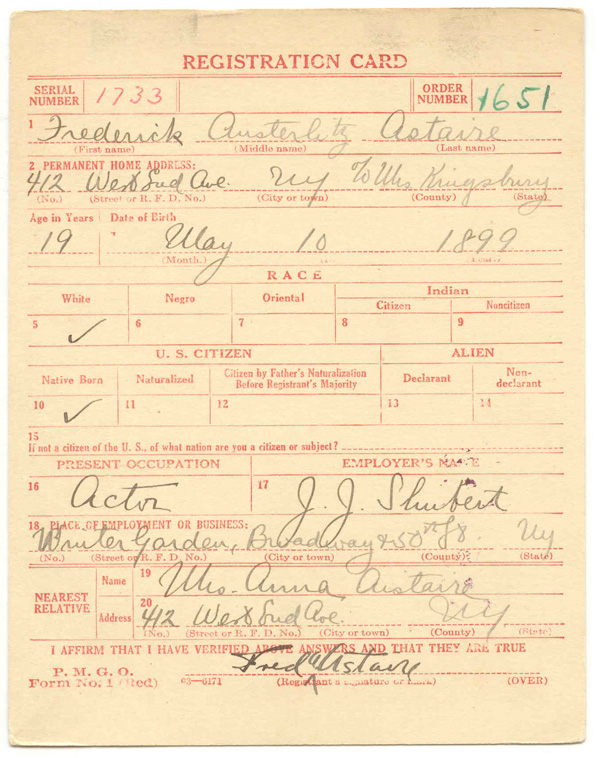 REGISTRATION CARD
SERIAL NUMBER 1733 ORDER NUMBER 1651
1 Frederick Austerlitz Astaire
(First name) (Middle name) (Last name)
2 PERMANENT HOME ADDRESS:
412 West End Ave. NY % Mrs Kingsbury
(No.) (Street or R. F. D. No.) (City or town) (County) (State)
Age in Years Date of Birth
19 May 10 1899
(Month.)
RACE
White Negro Oriental Indian
Citizen Noncitizen
5 ✓ 6 7 8 9
U. S. CITIZEN ALIEN
Native Born Naturalized Citizen by Father's Naturalization Before Registrant's Majority Declarant Non-declarant
10 ✓ 11 12 13 14
15
If not a citizen of the U. S., of what nation are you a citizen or subject?
PRESENT OCCUPATION EMPLOYER'S NAME
16 Actor 17 J. J. Shubert
18 PLACE OF EMPLOYMENT OR BUSINESS:
Winter Garden, Broadway & 50th NY
(No.) (Street or R. F. D. No.) (City or town) (County) (State)
NEAREST RELATIVE Name 19 Mrs. Anna Austaire
Address 20 412 West End Ave. NY
(No.) (Street or R. F. D. No.) (City or town) (County) (State)
I AFFIRM THAT I HAVE VERIFIED ABOVE ANSWERS AND THAT THEY ARE TRUE
P. M. G. O.
Form No. 1 (Red) 03—6171 Fred A Astaire
(Registrant's signature or mark) (OVER)